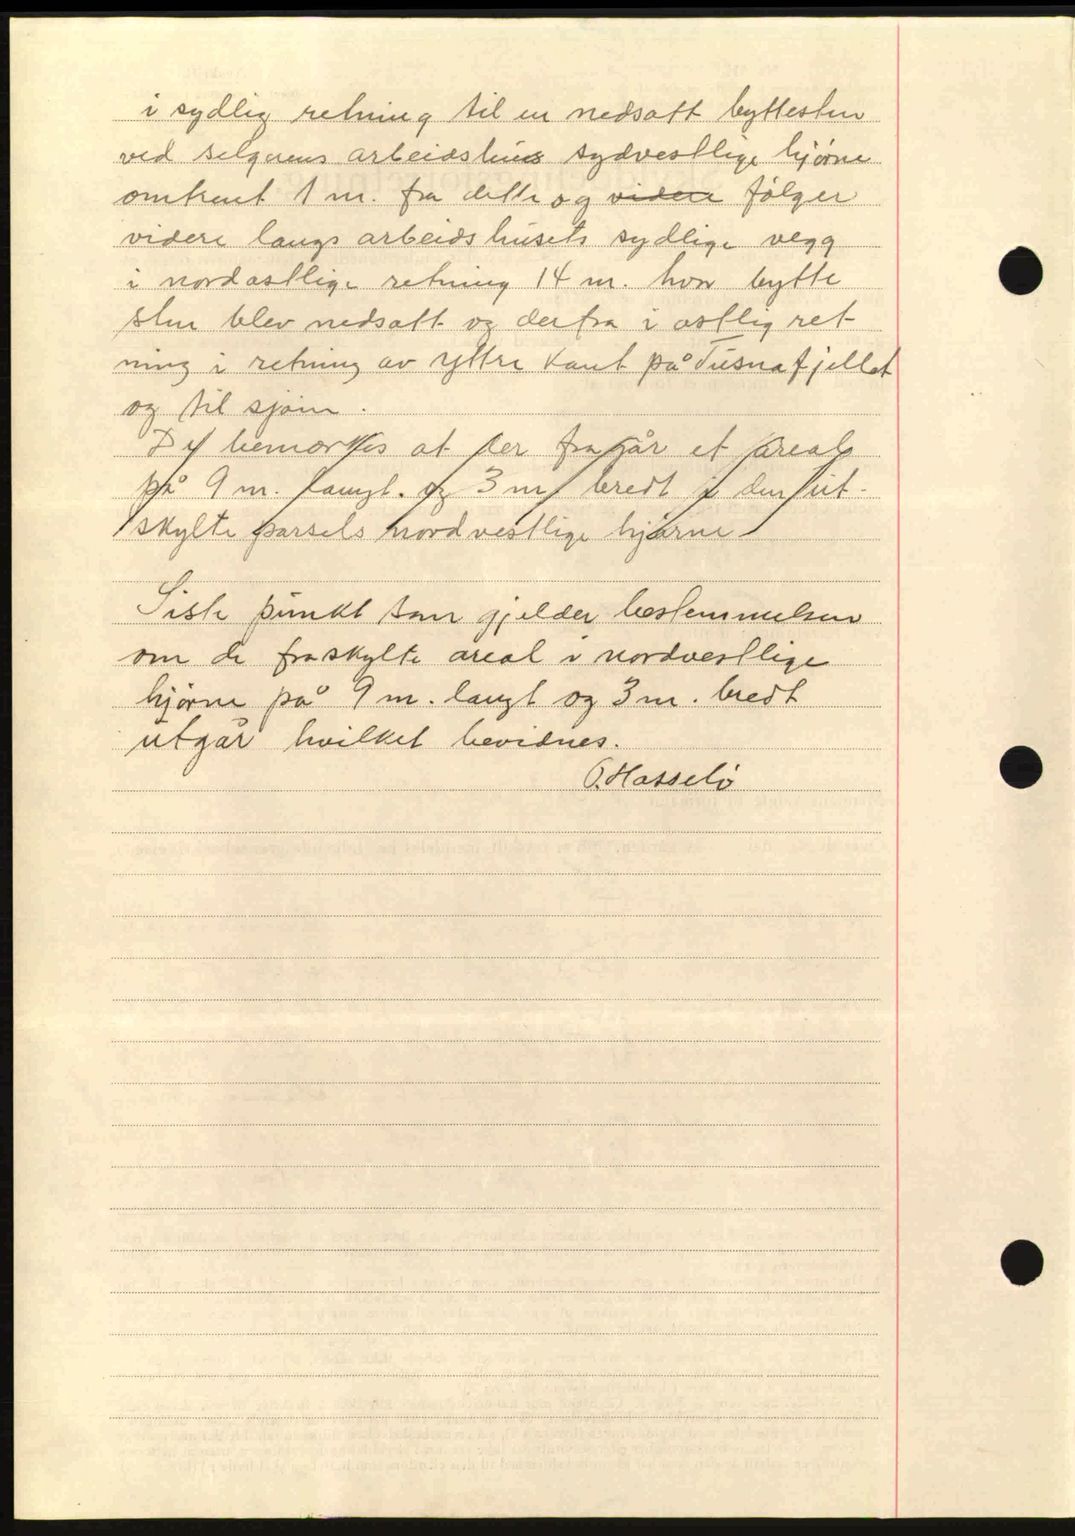 i sydlig retning til en nedsatt byttesten
ved selgerens arbeidshus sydvestlige hjørne
omtrent 1 m. fra dette og videre følger
videre langs arbeidshusets sydlige vegg
i nordøstlige retning 14 m. hvor bytte
sten blev nedsatt og derfra i østlig ret
ning i retning av yttre kant på Tusnafjellet
og til sjøen.
Det bemerkes at der fragår et areal
på 9 m. langt. og 3 m bredt i den ut-
skylte parsels nordvestlige hjørne
Siste punkt som gjelder bestemmelsen
om de fraskylte areal i nordvestlige
hjørne på 9 m. langt og 3 m. bredt
utgår hvilket bevidnes.
O. Hasselø